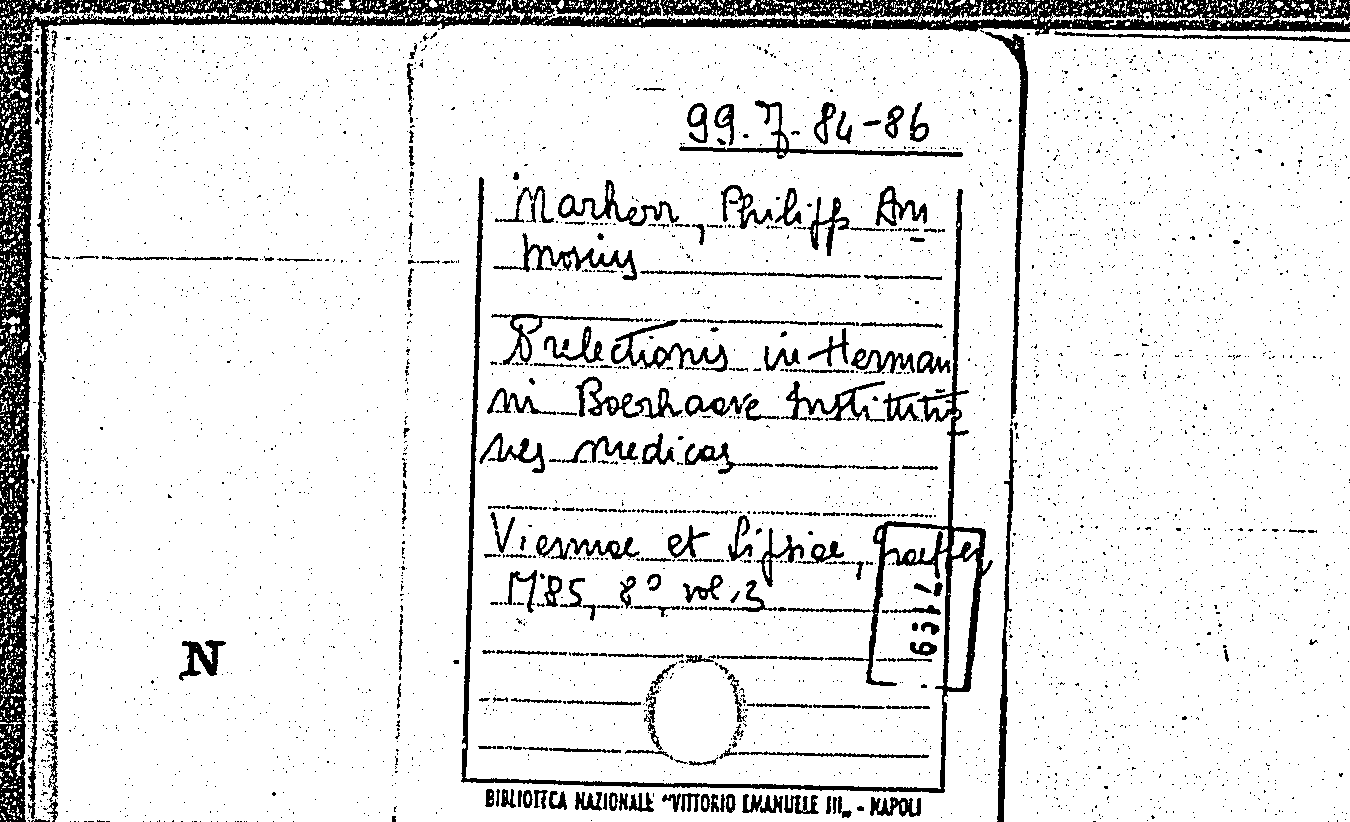 99. 7. 84-86
Marherr, Philipp Am
brosius
Prelectionis in Herman
ni Boerhaave Institutio
nes medicas
Viennae et Lipsiae,
1785, 8°, vol. 3
N
BIBLIOTECA NAZIONALE "VITTORIO EMANUELE III„ - NAPOLI